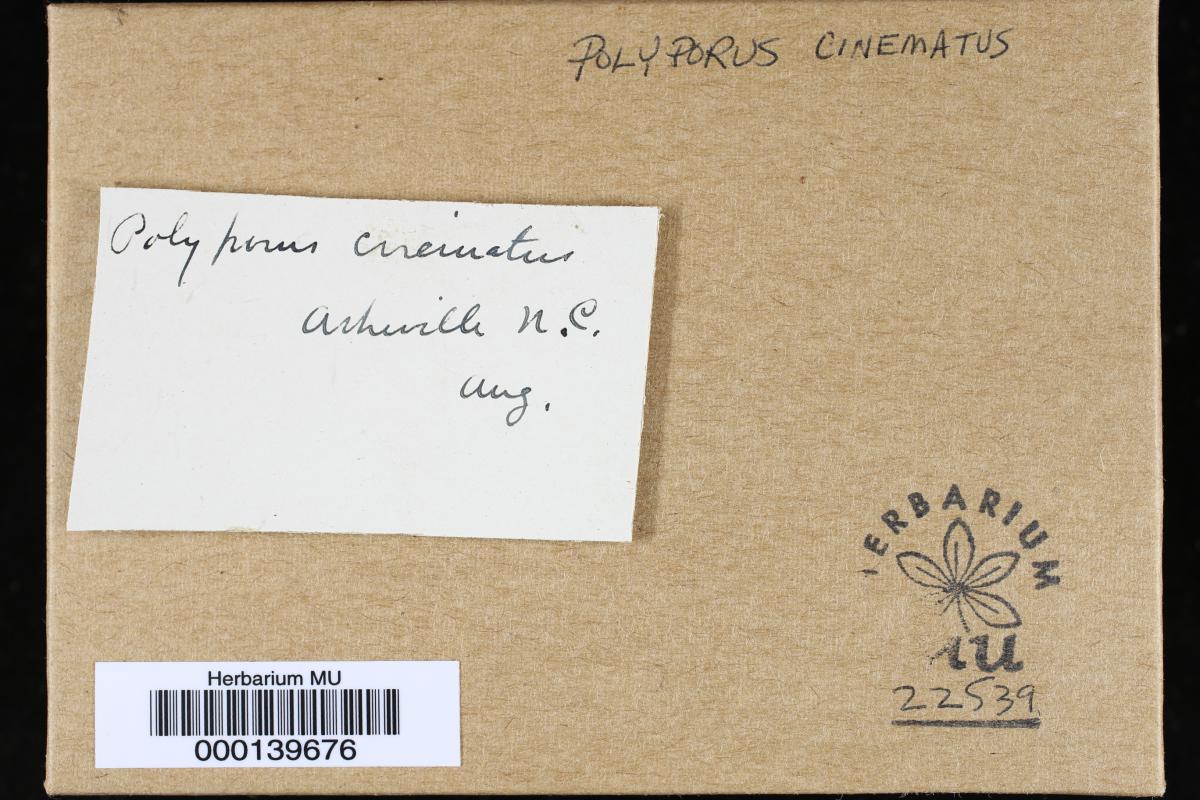 POLYPORUS CINEMATUS
Polyporus cinematus
Asheville N.C.
Aug.
HERBARIUM
MU
22539
Herbarium MU
000139676